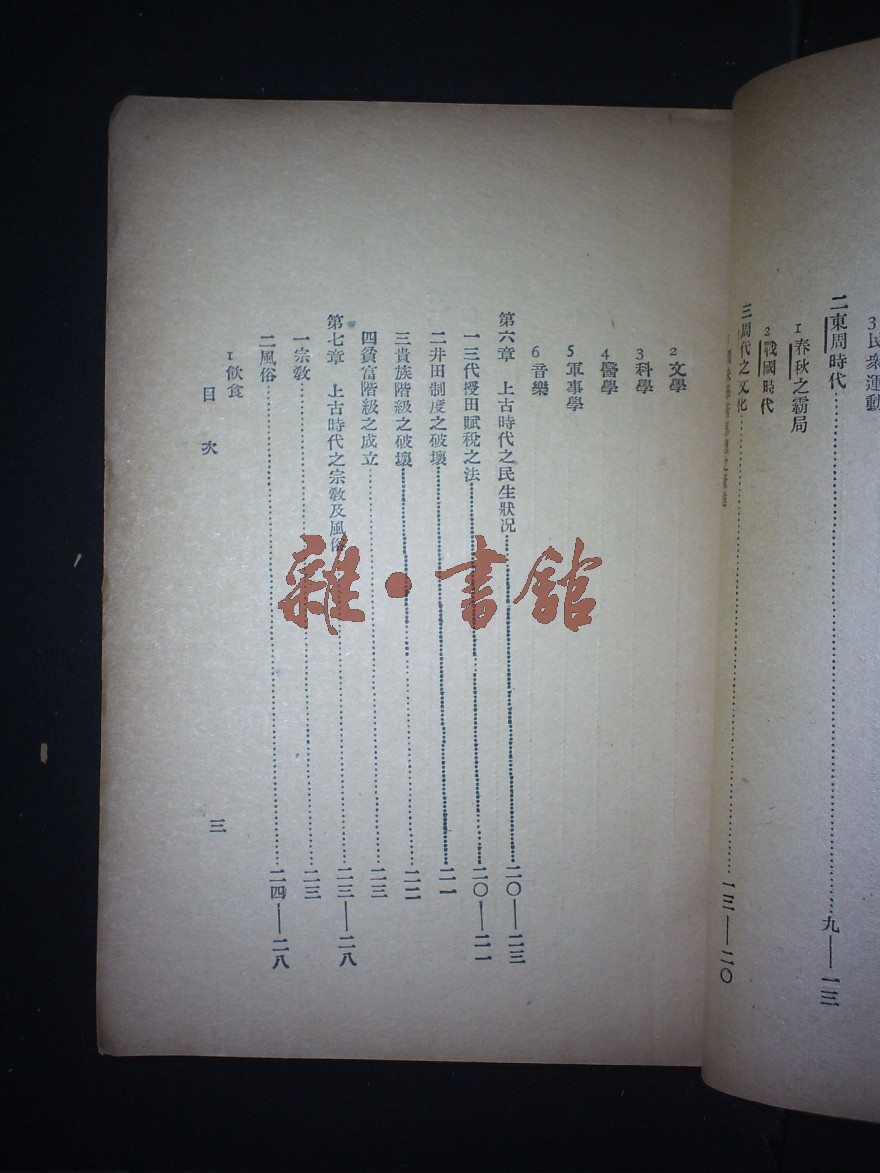 3民衆運動
二東周時代……九——一三
1春秋之霸局
2戰國時代
三周代之文化……一三——二〇
2文學
3科學
4醫學
5軍事學
6音樂
第六章 上古時代之民生狀況……二〇——二三
一三代授田賦稅之法……二〇——二一
二井田制度之破壞……二一
三貴族階級之破壞……二二
四貧富階級之成立……二三
第七章 上古時代之宗敎及風俗……二三——二八
一宗敎……二三
二風俗……二四——二八
1飲食
目次
三
雜·書館